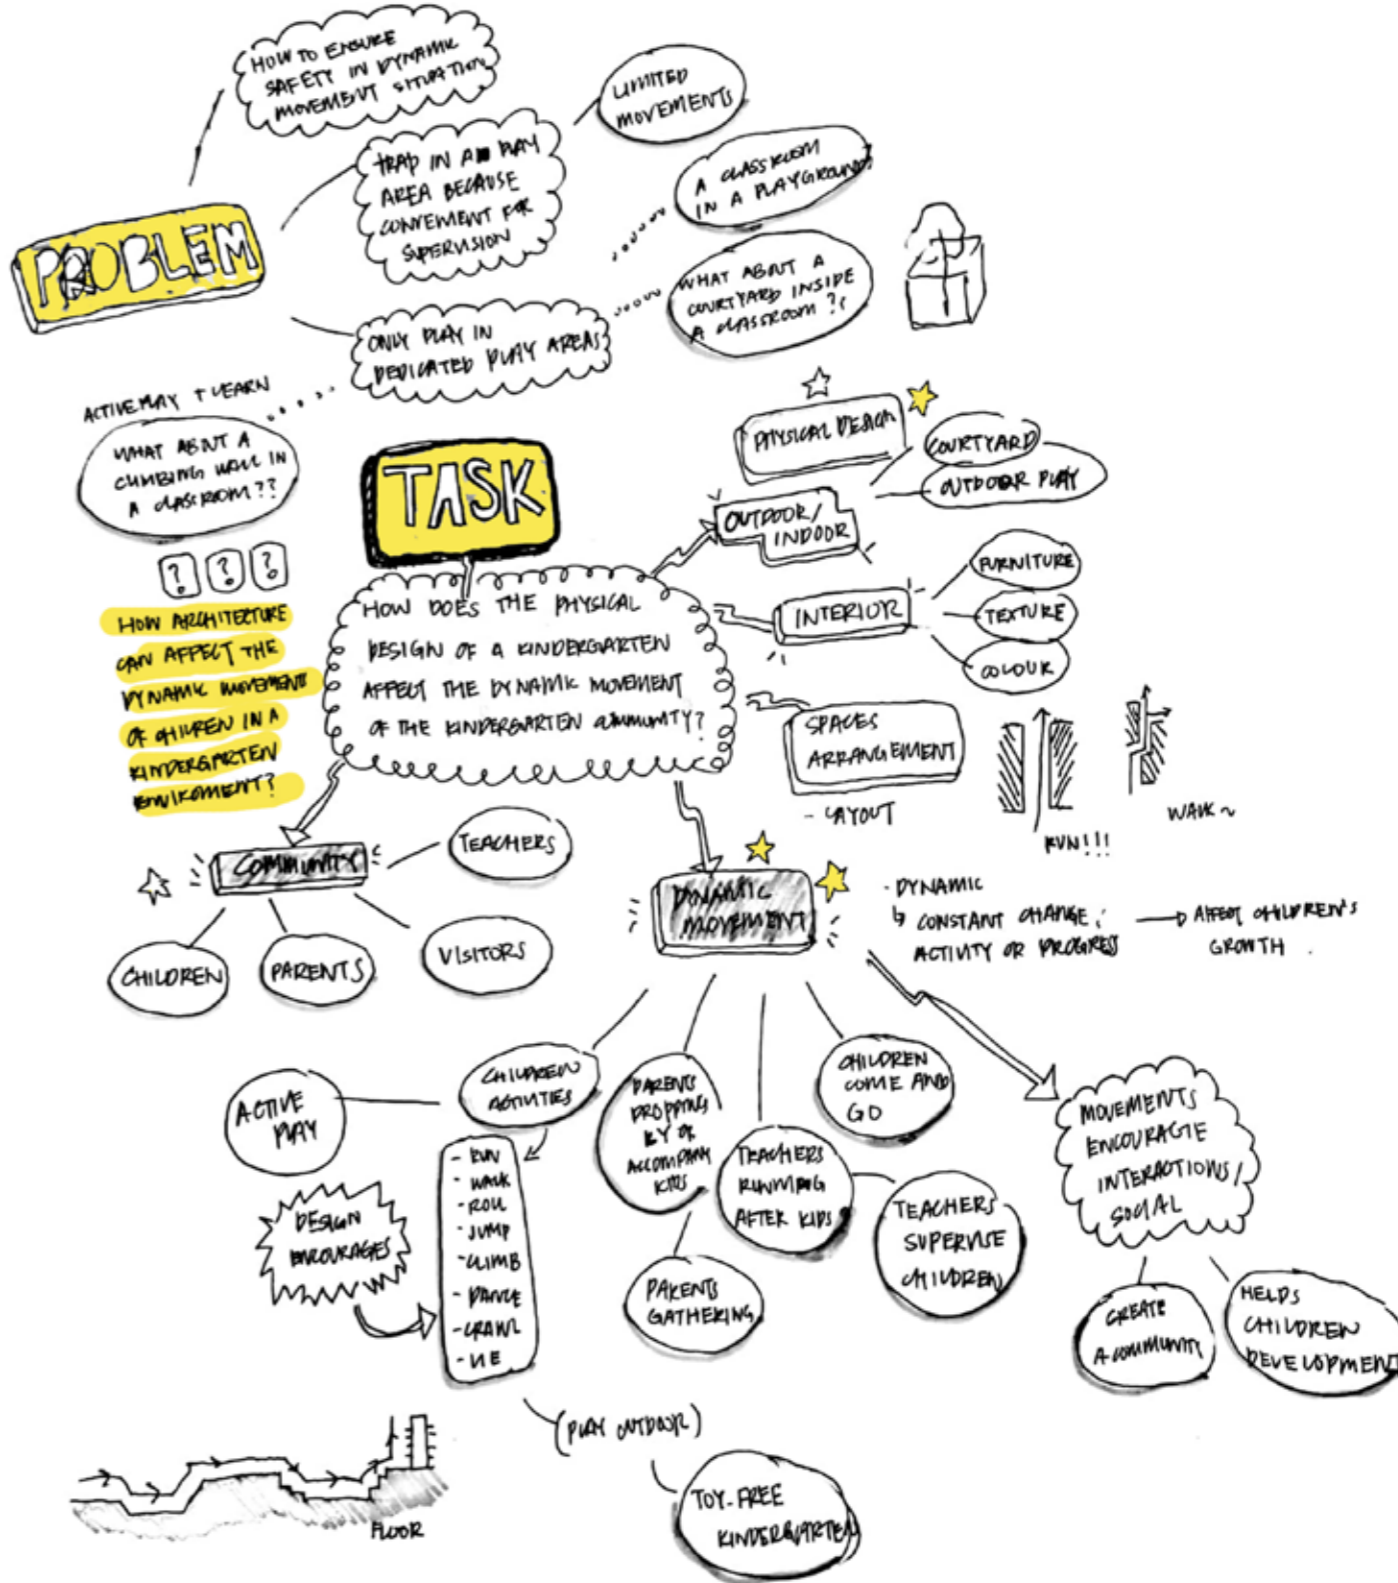 HOW TO ENSURE
SAFETY IN DYNAMIC
MOVEMENT SITUATION
LIMITED
MOVEMENTS
TRAP IN A PLAY
AREA BECAUSE
CONVENIENT FOR
SUPERVISION
A CLASSROOM
IN A PLAYGROUND
PROBLEM
WHAT ABOUT A
COURTYARD INSIDE
A CLASSROOM??
ONLY PLAY IN
DEDICATED PLAY AREAS
ACTIVE PLAY + LEARN
WHAT ABOUT A
CLIMBING WALL IN
A CLASSROOM??
? ? ?
HOW ARCHITECTURE
CAN AFFECT THE
DYNAMIC MOVEMENTS
OF CHILDREN IN A
KINDERGARTEN
ENVIROMENT?
TASK
HOW DOES THE PHYSICAL
DESIGN OF A KINDERGARTEN
AFFECT THE DYNAMIC MOVEMENT
OF THE KINDERGARTEN COMMUNITY?
PHYSICAL DESIGN
COURTYARD
OUTDOOR PLAY
OUTDOOR/
INDOOR
INTERIOR
FURNITURE
TEXTURE
COLOUR
SPACES
ARRANGEMENT
- LAYOUT
RUN!!!
WALK ~
COMMUNITY
TEACHERS
VISITORS
PARENTS
CHILDREN
DYNAMIC
MOVEMENT
- DYNAMIC
↳ CONSTANT CHANGE,
ACTIVITY OR PROGRESS
→ AFFECT CHILDREN'S
GROWTH.
CHILDREN
ACTIVITIES
ACTIVE
PLAY
- RUN
- WALK
- ROLL
- JUMP
- CLIMB
- DANCE
- CRAWL
- LIE
DESIGN
ENCOURAGES
PARENTS
DROPPING
BY OR
ACCOMPANY
KIDS
PARENTS
GATHERING
TEACHERS
RUNNING
AFTER KIDS
TEACHERS
SUPERVISE
CHILDREN
CHILDREN
COME AND
GO
MOVEMENTS
ENCOURAGE
INTERACTIONS/
SOCIAL
CREATE
A COMMUNITY
HELPS
CHILDREN
DEVELOPMENT
(PLAY OUTDOOR)
TOY-FREE
KINDERGARTEN
FLOOR